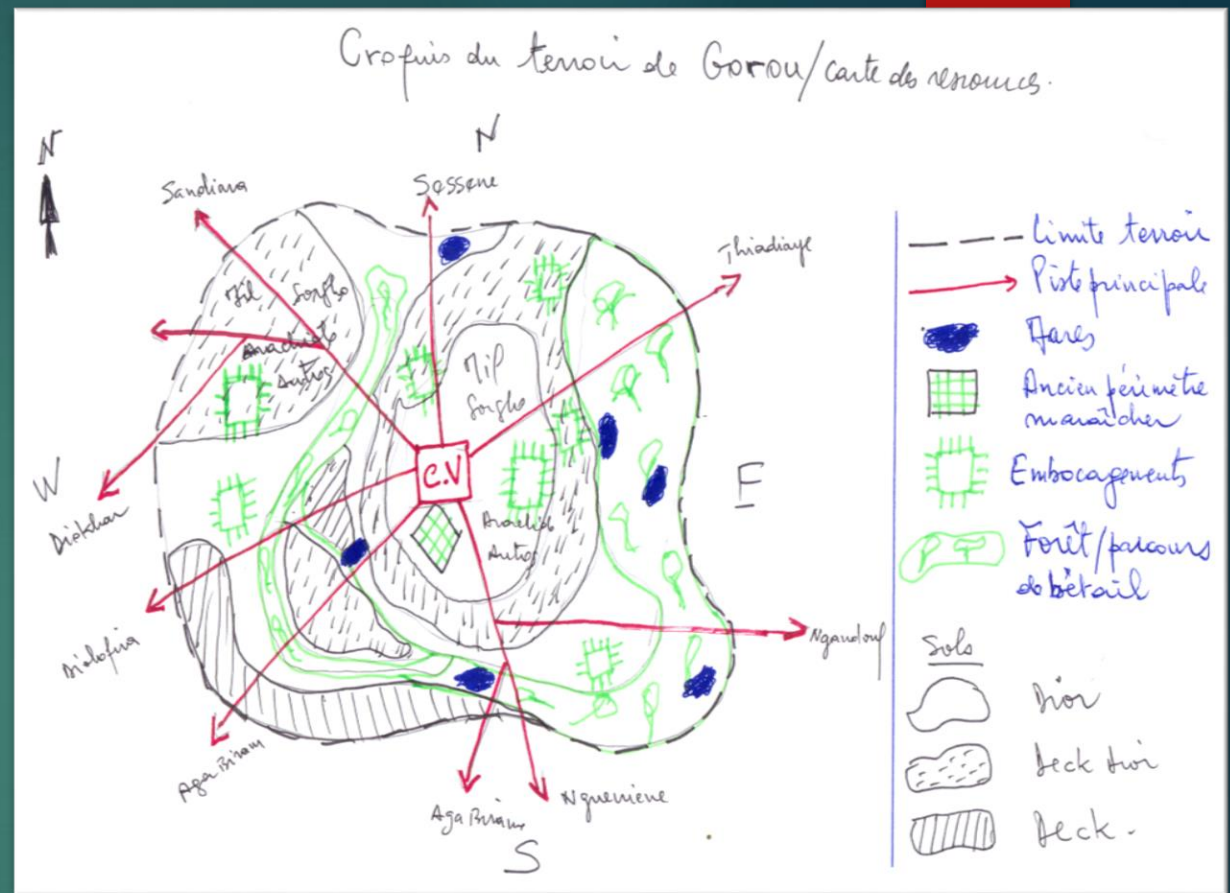 Croquis du terroir de Gorou/carte des ressources.
N
N
Sandiara
Sessene
Thiadiaye
Mil Sorgho
Arachide
Autres
Mil
Sorgho
C.V
Arachide
Autres
W
E
Diakhar
Ngandouf
Aga Biram
Aga Biram
Ngueniene
S
Limite terroir
Piste principale
Mares
Ancien périmètre
maraîcher
Embocagements
Forêt/parcours
de bétail
Sols
Dior
Deck dior
Deck.